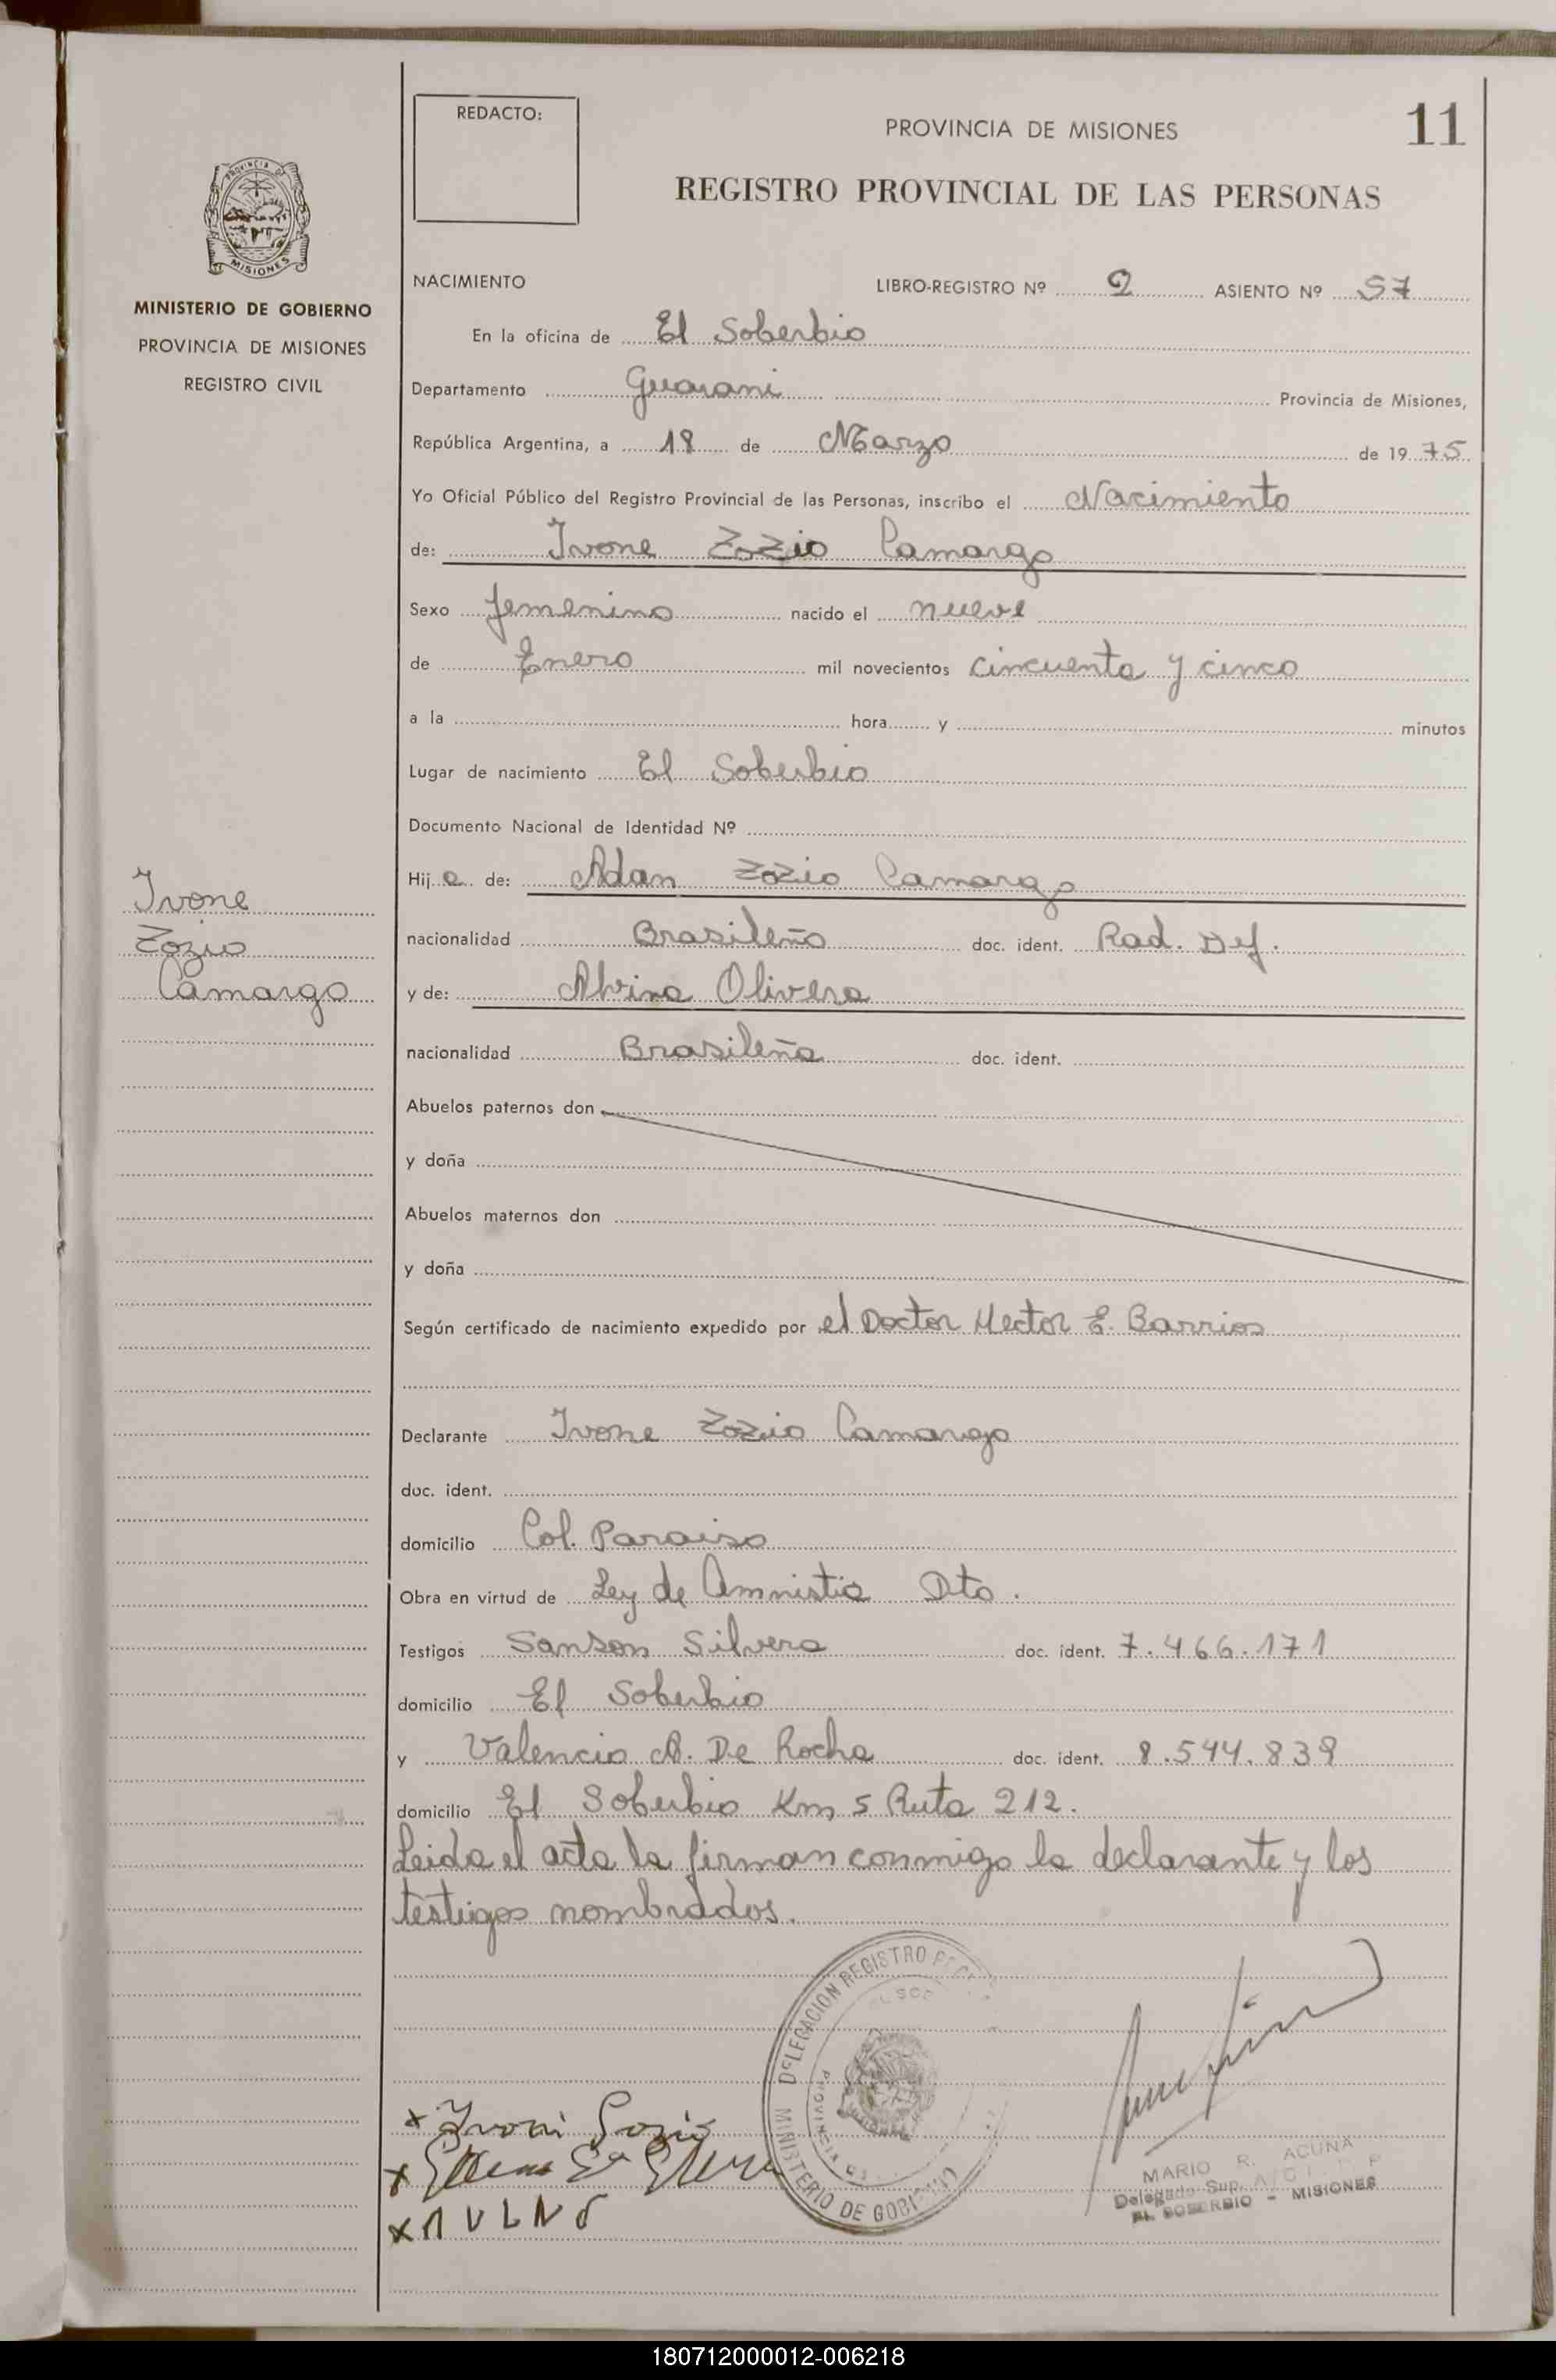 11
REDACTO:
PROVINCIA DE MISIONES
REGISTRO PROVINCIAL DE LAS PERSONAS
MISIONES
MINISTERIO DE GOBIERNO
PROVINCIA DE MISIONES
REGISTRO CIVIL
NACIMIENTO LIBRO-REGISTRO Nº 2 ASIENTO Nº 57
En la oficina de El Soberbio
Departamento Guarani Provincia de Misiones,
República Argentina, a 18 de Marzo de 1975
Yo Oficial Público del Registro Provincial de las Personas, inscribo el Nacimiento
de: Ivone Zozio Camargo
Sexo femenino nacido el nueve
de Enero mil novecientos cincuenta y cinco
a la hora y minutos
Lugar de nacimiento El Soberbio
Documento Nacional de Identidad Nº
Hija de: Adan Zozio Camargo
Ivone
Zozio
Camargo
nacionalidad Brasileño doc. ident. Rad. Def.
y de: Alvina Olivera
nacionalidad Brasileña doc. ident.
Abuelos paternos don
y doña
Abuelos maternos don
y doña
Según certificado de nacimiento expedido por el Doctor Hector E. Barrios
Declarante Ivone Zozio Camargo
doc. ident.
domicilio Col. Paraiso
Obra en virtud de Ley de Amnistia Dto.
Testigos Sanson Silvera doc. ident. 7.466.171
domicilio El Soberbio
y Valencio A. De Rocha doc. ident. 8.544.839
domicilio El Soberbio Km 5 Ruta 212.
Leida el acta la firman conmigo la declarante y los
testigos nombrados.
DELEGACION REGISTRO
MINISTERIO DE GOBIERNO
MARIO R. ACUÑA
Delegado Sup.
EL SOBERBIO - MISIONES
180712000012-006218